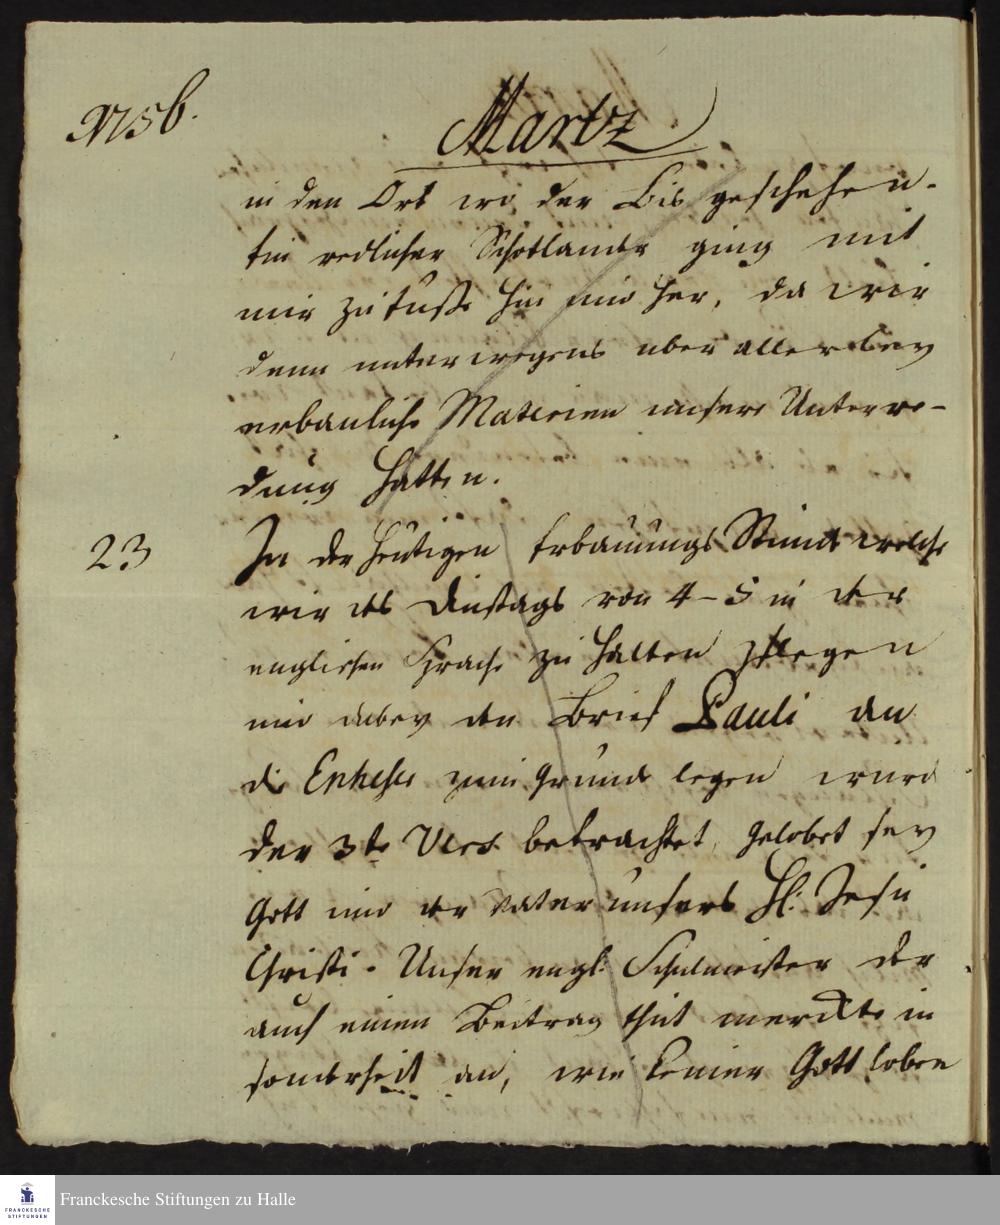 1756.
Martz
in den Ort wo der Bis geschehen.
Ein redlicher Schotlander ging mit
mir zu fuße hin und her, da wir
denn unterwegens uber allerley
erbauliche Materien unsere Unterre-
dung hatten.
23
In der heutigen Erbauungs Stunde welche
wir des Dinstags von 4-5 in der
englischen Sprache zu halten pflegen
und dabey den Brief Pauli an
die Epheser zum Grunde legen wurd
der 3te Vers betrachtet, Gelobet sey
Gott und der Vater unsers H: Jesu
Christi. Unser engl: Schulmeister der
auch einen Beitrag thut merckte in
sonderheit an, wie keiner Gott loben
FRANCKESCHE
STIFTUNGEN
Franckesche Stiftungen zu Halle